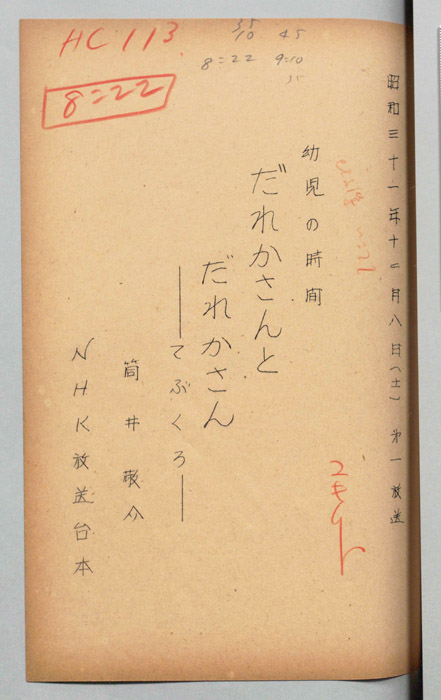 HC113
8=22
35
10 45
8=22 9=10
昭和三十一年十二月八日(土) 第一放送
幼児の時間
だれかさんと
だれかさん
――てぶくろ――
筒井敬介
NHK放送台本